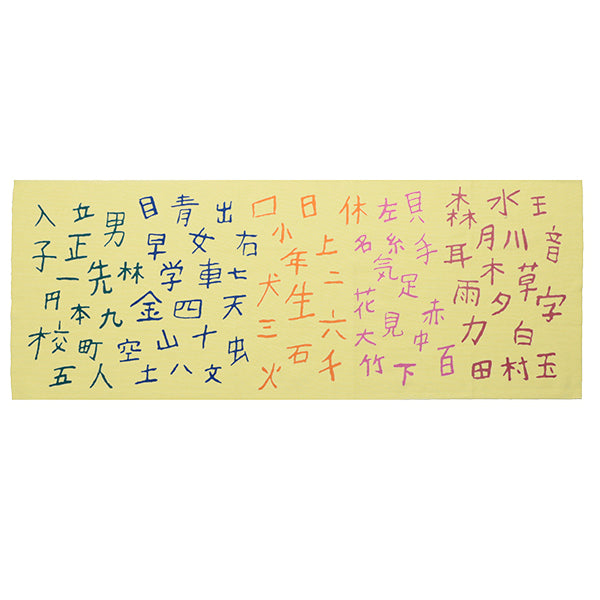 王音字玉
川草白村
水月木夕田
森耳雨力
手赤中百
貝足見下
左糸気
名花大竹
休上二六千
日年生石
口小犬三火
右七天虫
出女車十文
青学四山八
目早金土
男林九空
立正先本町人
入子一円校五